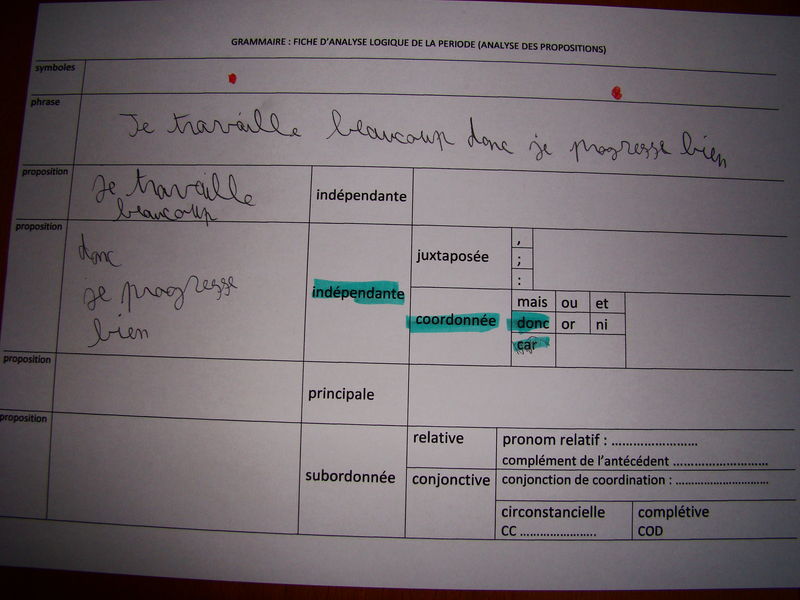 GRAMMAIRE : FICHE D'ANALYSE LOGIQUE DE LA PERIODE (ANALYSE DES PROPOSITIONS)
symboles
phrase
Je travaille beaucoup donc je progresse bien
proposition
Je travaille
beaucoup
indépendante
proposition
donc
je progresse
bien
indépendante
juxtaposée
,
;
:
coordonnée
mais ou et
donc or ni
car
proposition
principale
proposition
subordonnée
relative
pronom relatif : ........................
complément de l'antécédent ..........................
conjonctive
conjonction de coordination : .........................
circonstancielle
CC .....................
complétive
COD